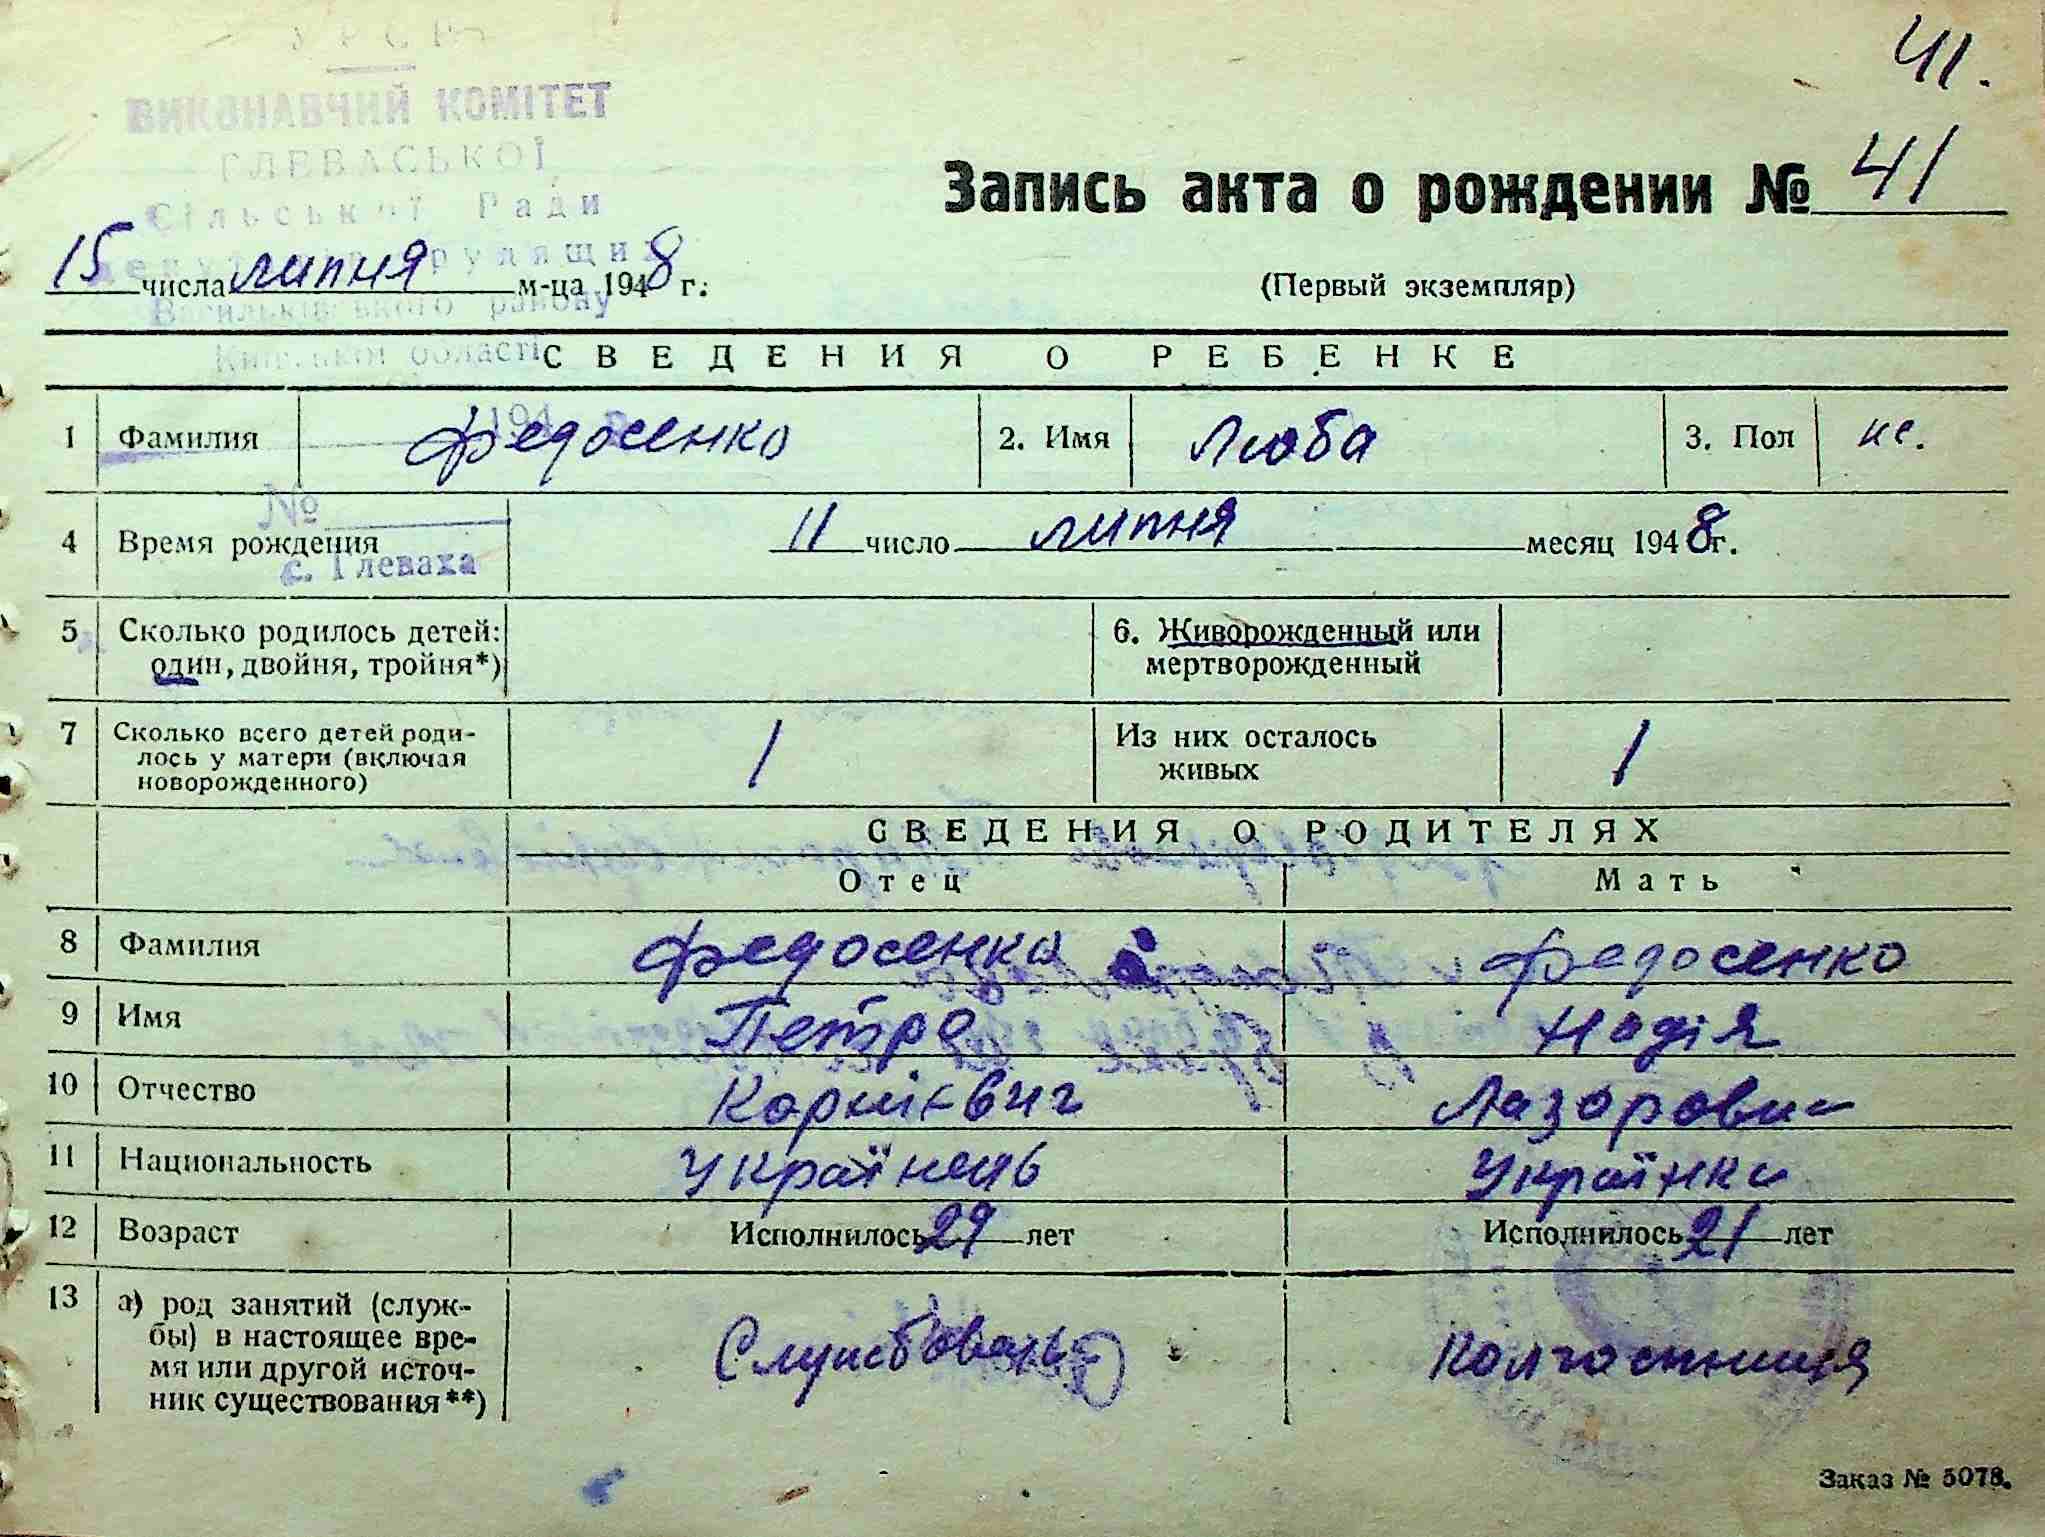 УРСР
41.
ВИКОНАВЧИЙ КОМІТЕТ
ГЛЕВАСЬКОЇ
Сільської Ради
депутатів трудящих
Васильківського району
Київської області
194
№
с. Глеваха
Запись акта о рождении № 41
15 числа липня м-ца 1948 г.
(Первый экземпляр)
СВЕДЕНИЯ О РЕБЕНКЕ
1 Фамилия Федосенко 2. Имя Люба 3. Пол
4 Время рождения 11 число липня месяц 1948 г.
5 Сколько родилось детей: один, двойня, тройня*) 6. Живорожденный или мертворожденный
7 Сколько всего детей родилось у матери (включая новорожденного) 1 Из них осталось живых 1
СВЕДЕНИЯ О РОДИТЕЛЯХ
Отец Мать
8 Фамилия Федосенко Федосенко
9 Имя Петро Надія
10 Отчество Корнієвич
11 Национальность Українець Українка
12 Возраст Исполнилось 29 лет Исполнилось 21 лет
13 а) род занятий (службы) в настоящее время или другой источник существования**) Колгостниця
Заказ № 5078.